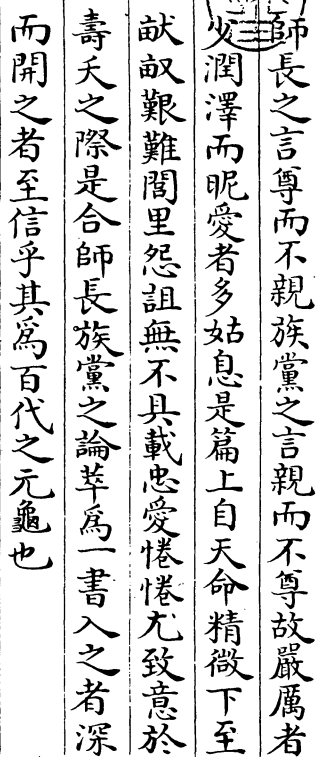 師長之言尊而不親族黨之言親而不尊故嚴厲者
少潤澤而昵愛者多姑息是篇上自天命精微下至
畎畝艱難閭里怨詛無不具載忠愛惓惓尤致意於
壽夭之際是合師長族黨之論萃爲一書入之者深
而開之者至信乎其爲百代之元龜也